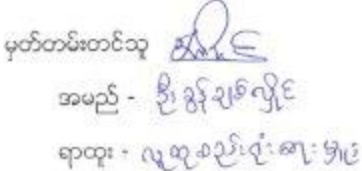 မှတ်တမ်းတင်သူ
အမည် - ဦးခွန်ချစ်လှိုင်
ရာထူး - လူထုစည်းရုံးရေးမှူး